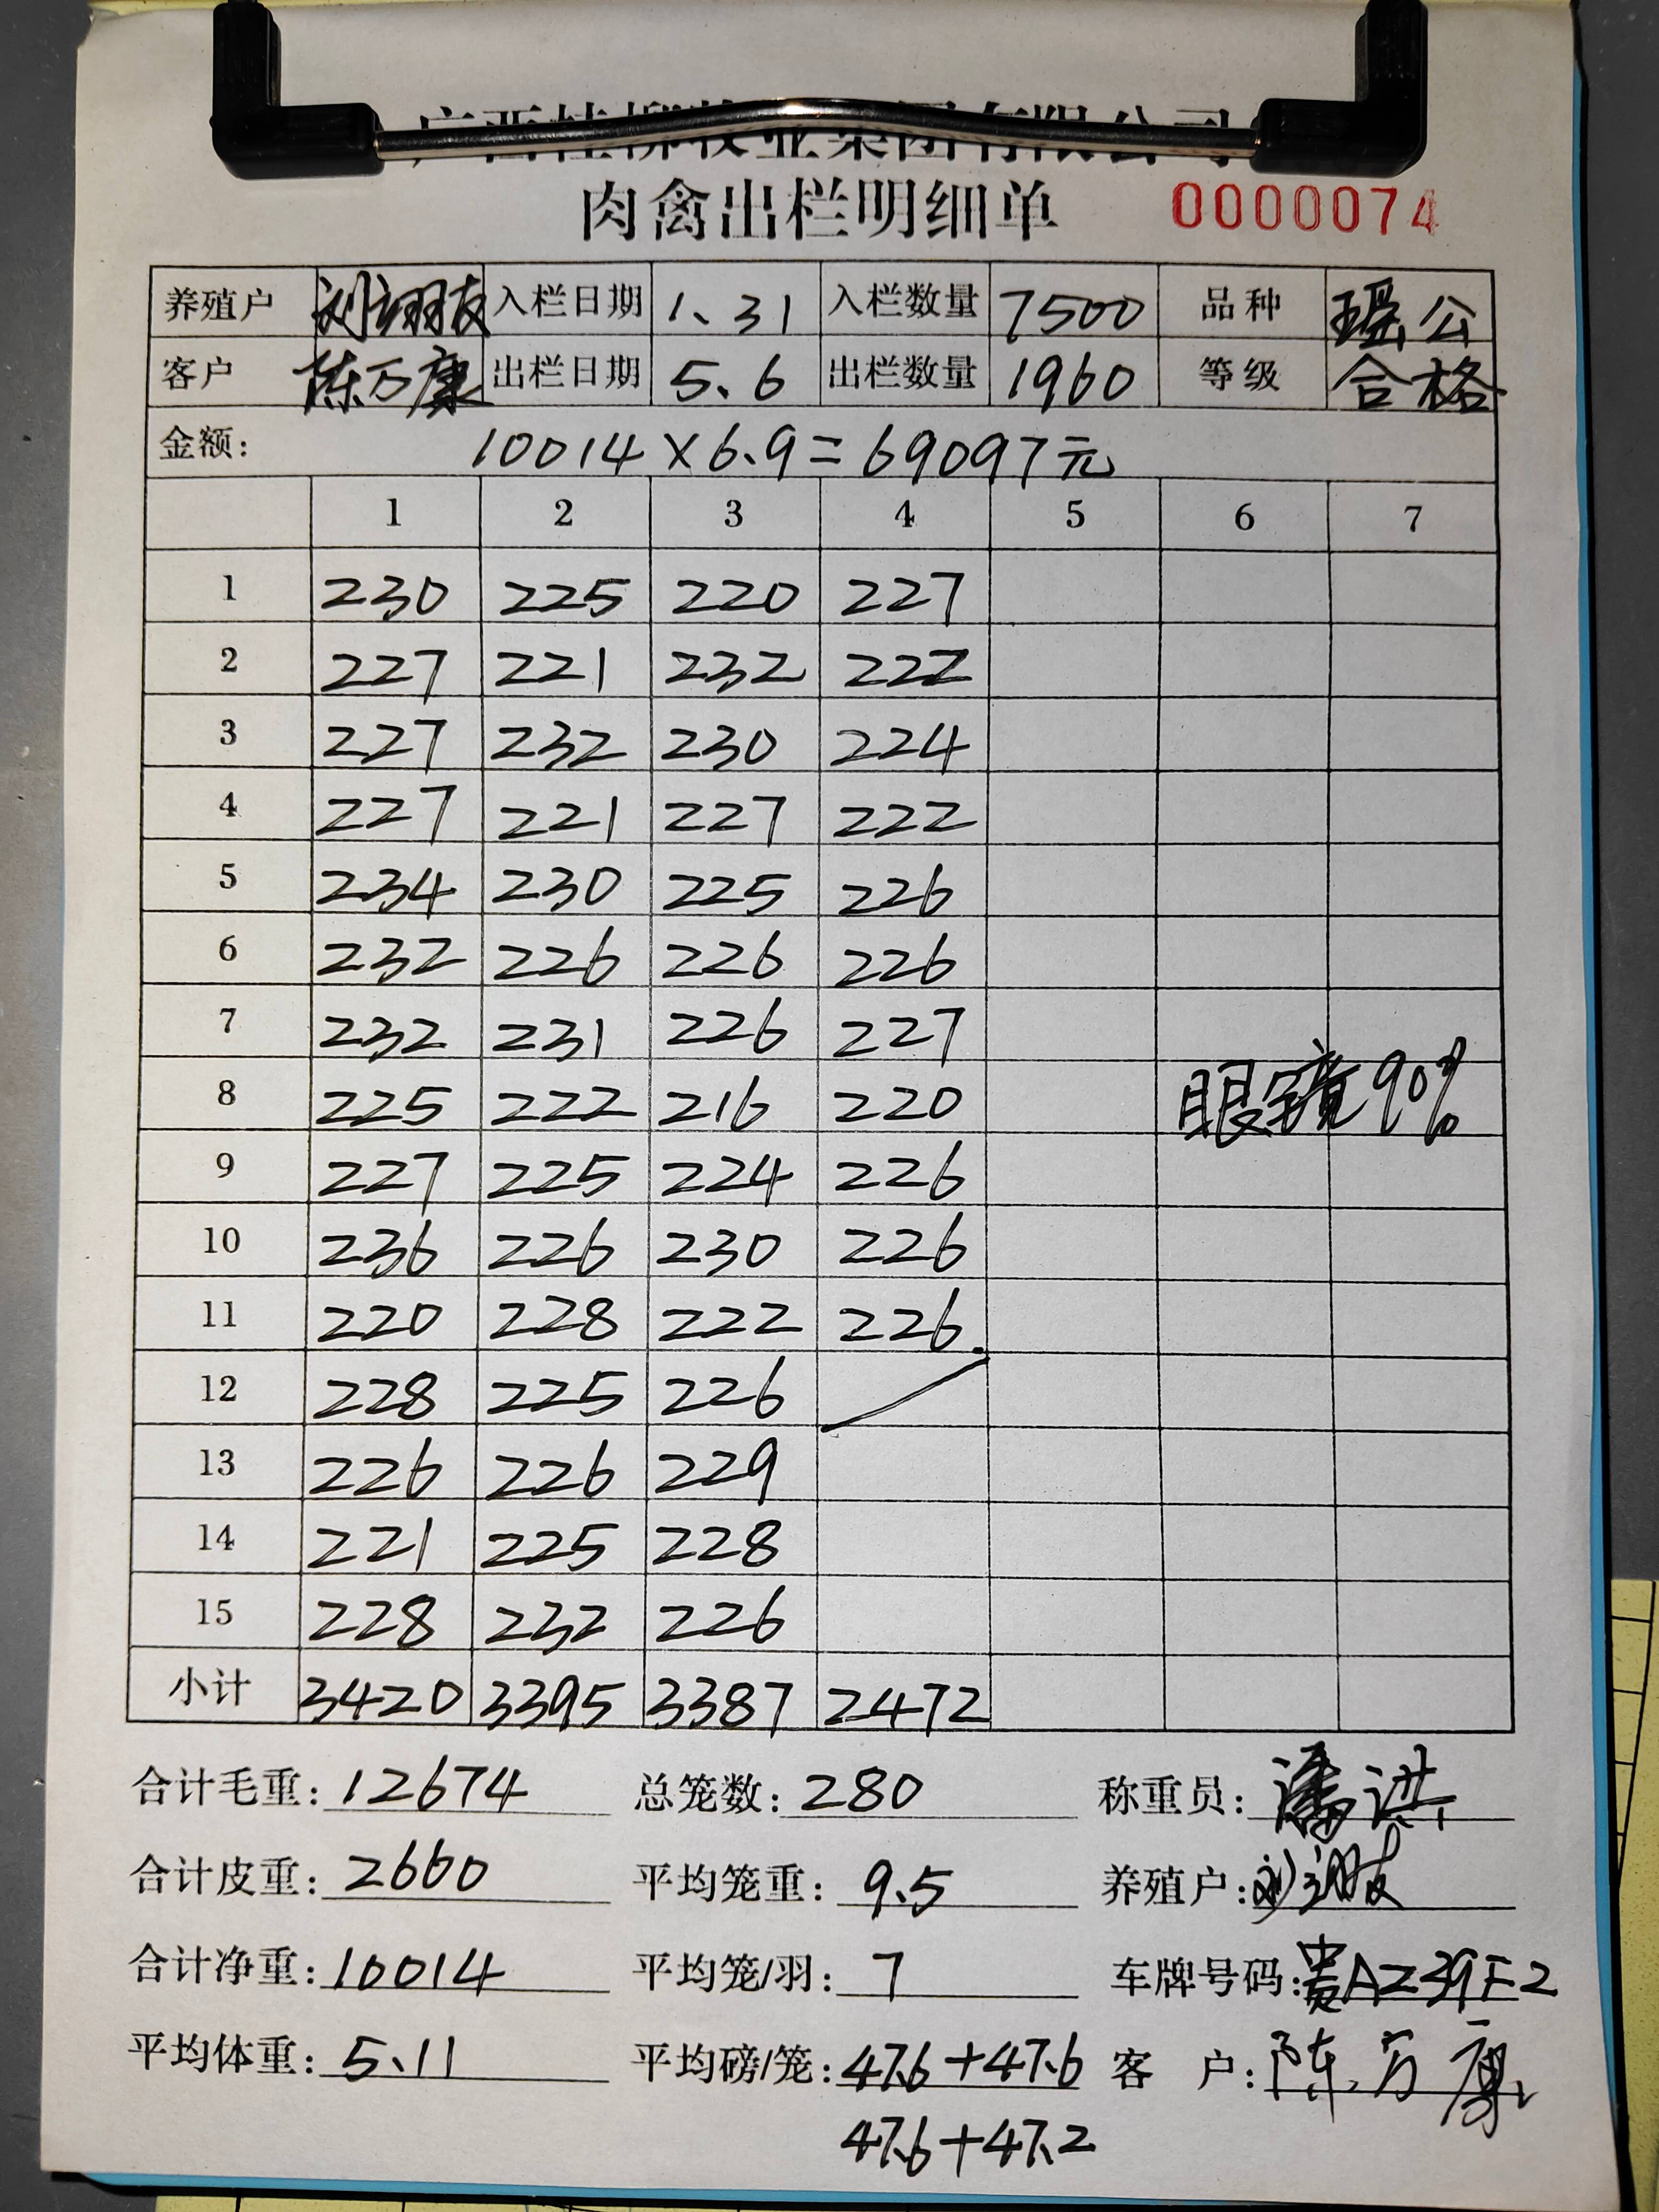 广西桂柳牧业集团有限公司
肉禽出栏明细单 0000074
养殖户 刘翊友 入栏日期 1、31 入栏数量 7500 品种 瑶公
客户 陈万康 出栏日期 5、6 出栏数量 1960 等级 合格
金额: 10014×6.9=69097元
1 2 3 4 5 6 7
1 230 225 220 227
2 227 221 232 222
3 227 232 230 224
4 227 221 227 222
5 234 230 225 226
6 232 226 226 226
7 232 231 226 227
8 225 222 216 220 眼镜90%
9 227 225 224 226
10 236 226 230 226
11 220 228 222 226.
12 228 225 226
13 226 226 229
14 221 225 228
15 228 232 226
小计 3420 3395 3387 2472
合计毛重: 12674 总笼数: 280 称重员: 潘洪
合计皮重: 2660 平均笼重: 9.5 养殖户: 刘翊友
合计净重: 10014 平均笼/羽: 7 车牌号码: 贵AZ39F2
平均体重: 5、11 平均磅/笼: 47.6+47.6 客 户: 陈万康
47.6+47.2